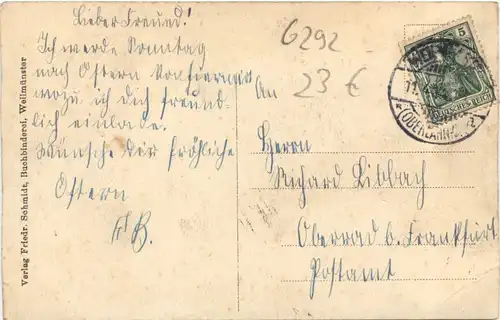 Lieber Freund!
Ich werde Sonntag
nach Ostern
wozu ich Dich freund-
lich einlade.
Wünsche Dir fröhliche
Ostern
6292
23 €
An
Herrn
Richard Libbach
Oberrad b. Frankfurt
Postamt
5
DEUTSCHES REICH
(OBERLAHN)
Verlag Friedr. Schmidt, Buchbinderei, Weilmünster